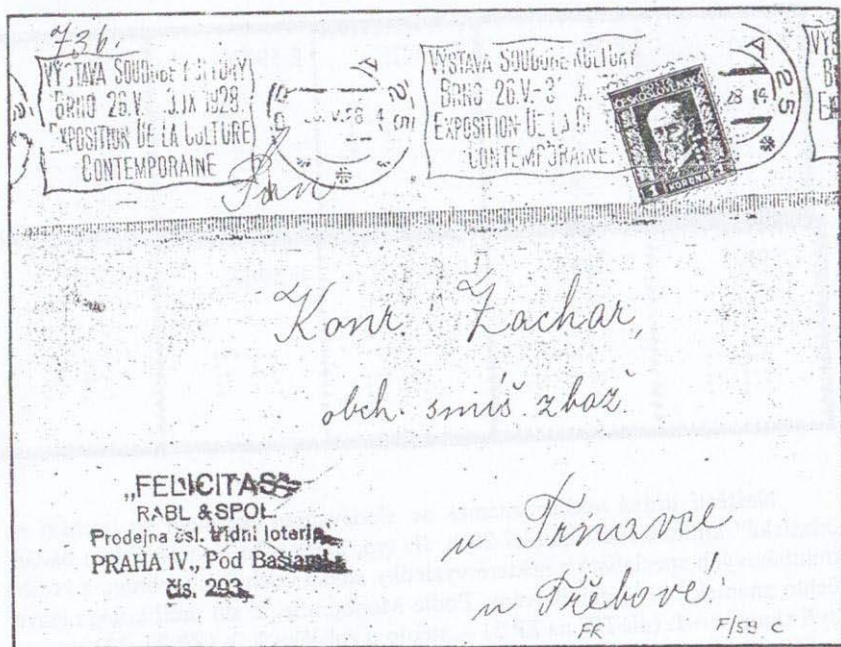 736.
VÝSTAVA SOUDOBÉ KULTURY
BRNO 26.V. 3.IX 1928
EXPOSITION DE LA CULTURE
CONTEMPORAINE
VÝSTAVA SOUDOBÉ KULTURY
BRNO 26.V.-3 X.
EXPOSITION DE LA
CONTEMPORAINE.
V.28
28 14
25
ČESKOSLOVENSKÁ
1 KORUNA
Pan
Konr. Zachar,
obch. smíš. zbož.
„FELICITAS“
RABL & SPOL.
Prodejna čsl. třídní loterie
PRAHA IV., Pod Baštami
čís. 293.
u Trnavce
u Třebové!
FR F/59 c